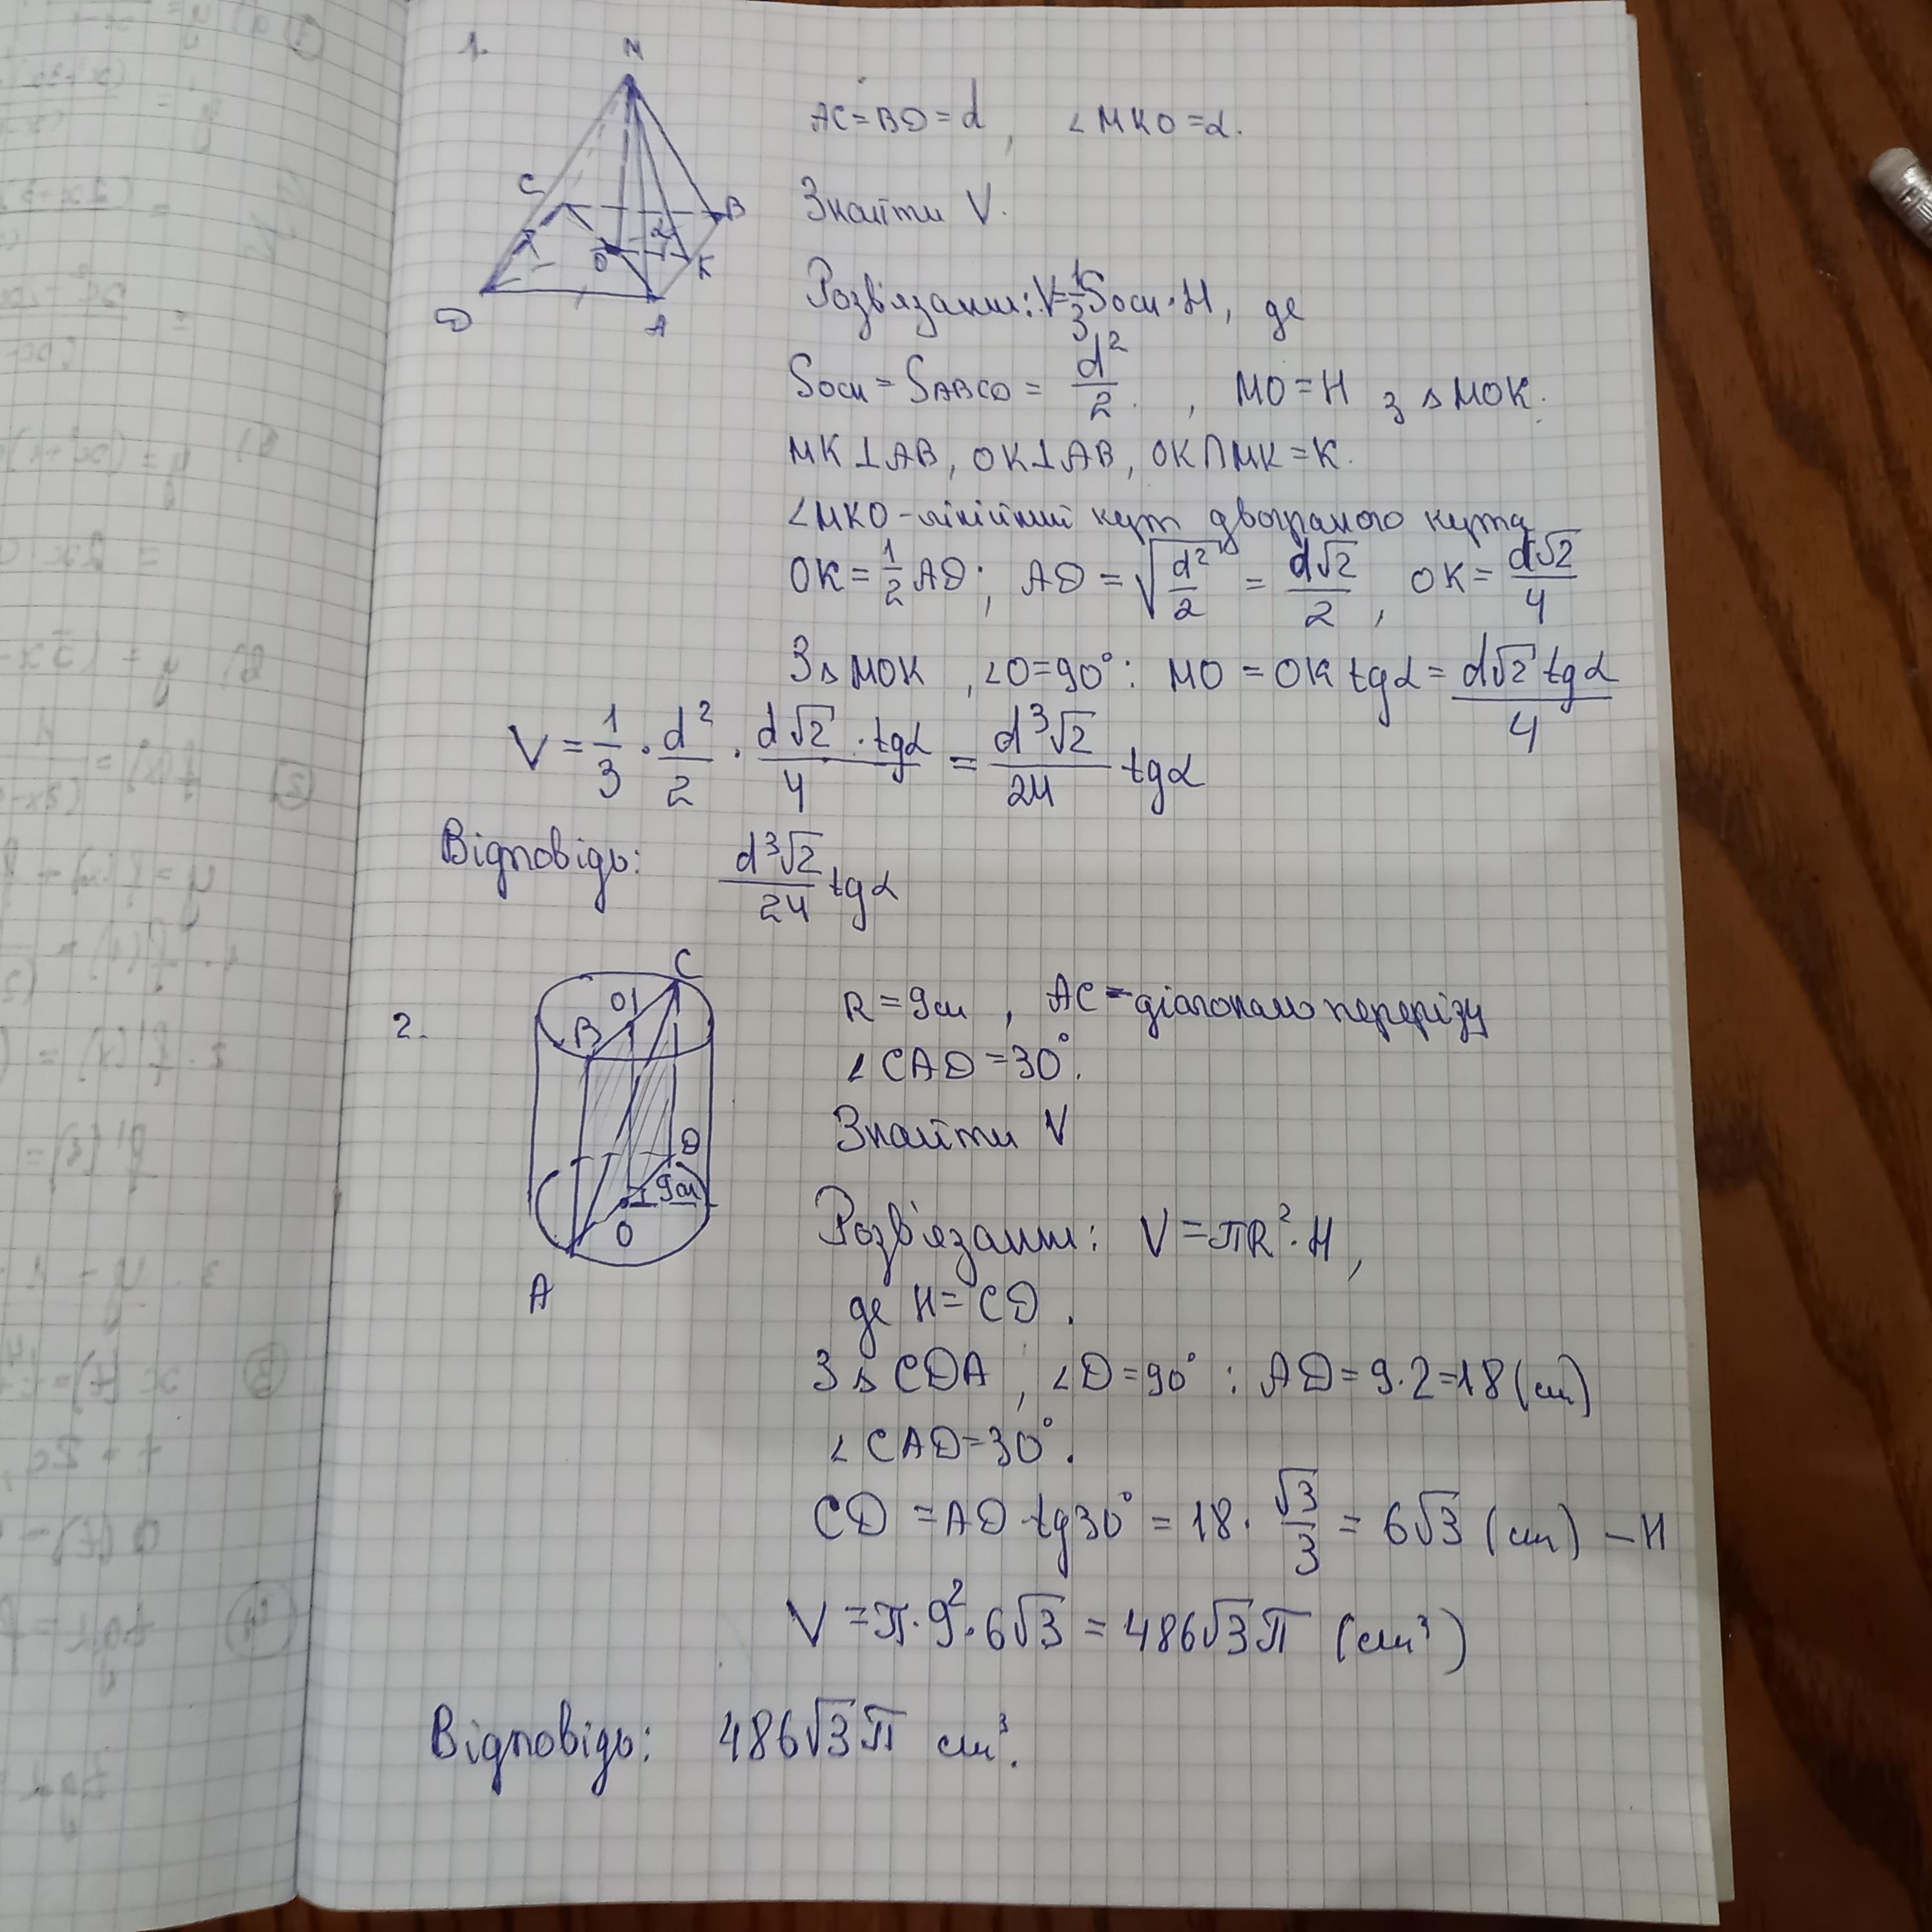 1.
M
C
B
α
O
K
D
A
AC=BD=d, ∠MKO=α.
Знайти V.
Розв'язання: V=1/3 Sосн·H, де
Sосн = SABCD = d²/2, MO=H з △MOK.
MK⊥AB, OK⊥AB, OK∩MK=K.
∠MKO - лінійний кут двогранного кута
OK=1/2 AD; AD=√(d²/2) = d√2/2, OK=d√2/4
З △MOK, ∠O=90°: MO = OK tgα = d√2 tgα/4
V = 1/3 · d²/2 · d√2·tgα/4 = d³√2/24 tgα
Відповідь: d³√2/24 tgα
2.
C
O1
B
D
9см
O
A
R=9см, AC - діагональ перерізу
∠CAD=30°.
Знайти V
Розв'язання: V=πR²·H,
де H=CD.
З △CDA, ∠D=90°: AD=9·2=18(см)
∠CAD=30°.
CD = AD·tg30° = 18·√3/3 = 6√3 (см) - H
V = π·9²·6√3 = 486√3π (см³)
Відповідь: 486√3π см³.